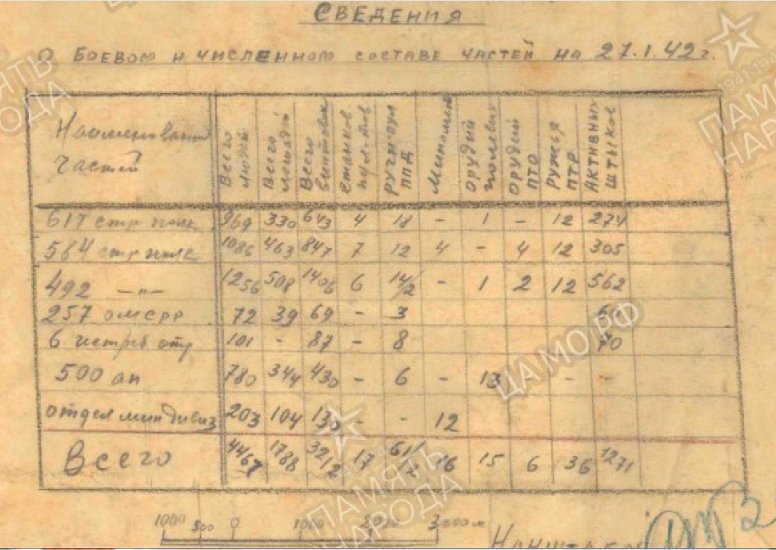 СВЕДЕНИЯ
О БОЕВОМ И ЧИСЛЕННОМ СОСТАВЕ ЧАСТЕЙ НА 27.1.42 г.
Наименование частей Всего людей Всего лошадей Всего винтовок Станков пул-тов ручн. пул ППД Миномет орудий полевых Орудий ПТО Ружья ПТР Активных штыков
617 стр полк 969 330 643 4 18 - 1 - 12 274
584 стр полк 1086 463 847 7 12 4 - 4 12 305
492 -"- 1256 508 1406 6 14/2 - 1 2 12 562
257 омсрр 72 39 69 - 3
6 истреб отр 101 - 87 - 8 70
500 ап 780 344 430 - 6 - 13 - - -
отдел миндивиз 203 104 130 - - 12
Всего 4467 1788 3212 17 61/2 16 15 6 36 1271
1000 500 0 1000 2000 3000 м
НАЧШТАБА
ПАМЯТЬ НАРОДА
1941-19
ПАМЯТЬ НАРОДА
ЦАМО.РФ
ПАМЯТЬ НАРОДА